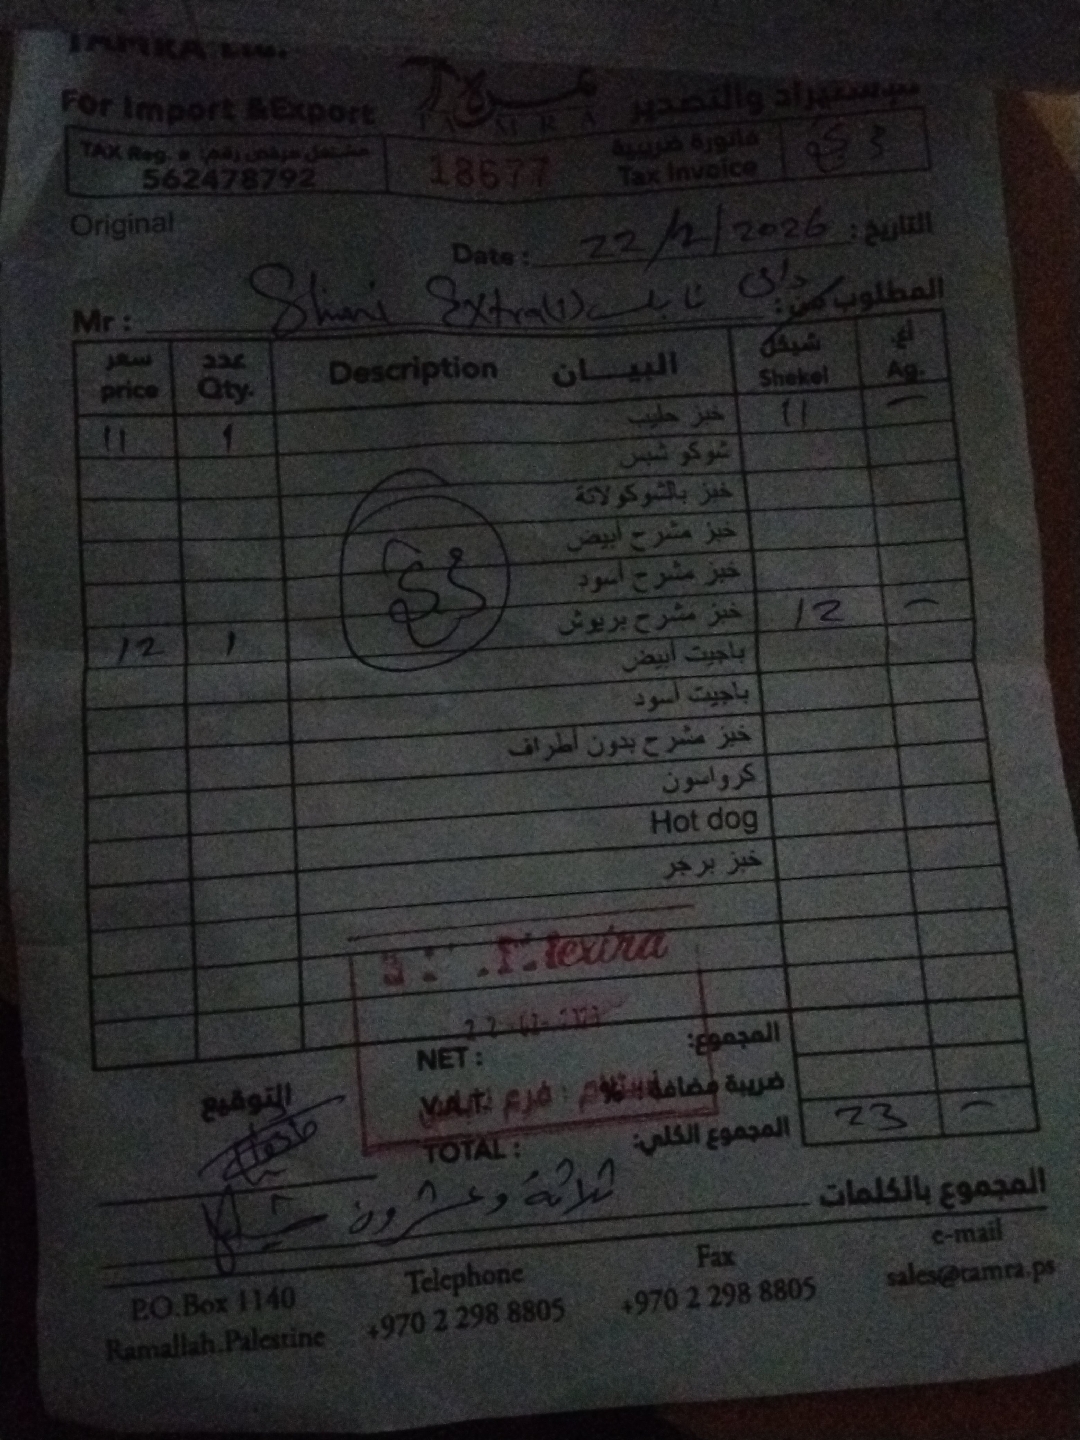 TAMRA Ltd.
For Import &Export
للاستيراد والتصدير
تمرة
TAMRA
TAX Reg. مشتغل مرخص رقم
562478792
18677
فاتورة ضريبية
Tax Invoice
Original
Date : 22/2/2026 التاريخ :
Mr : Shini Extra(1) نابلس المطلوب من:
سعر price عدد Qty. Description البيـــان شيكل Shekel اغ Ag.
11 1 خبز حليب 11 -
شوكو شبس
خبز بالشوكولاتة
خبز مشرح أبيض
خبز مشرح أسود
12 1 خبز مشرح بريوش 12 -
باجيت أبيض
باجيت أسود
خبز مشرح بدون أطراف
كرواسون
Hot dog
خبز برجر
extra
NET : المجموع:
V.A.T ضريبة مضافة %
TOTAL : المجموع الكلي: 23 -
التوقيع
المجموع بالكلمات ثلاثة وعشرون
P.O.Box 1140
Ramallah.Palestine
Telephone
+970 2 298 8805
Fax
+970 2 298 8805
e-mail
sales@tamra.ps